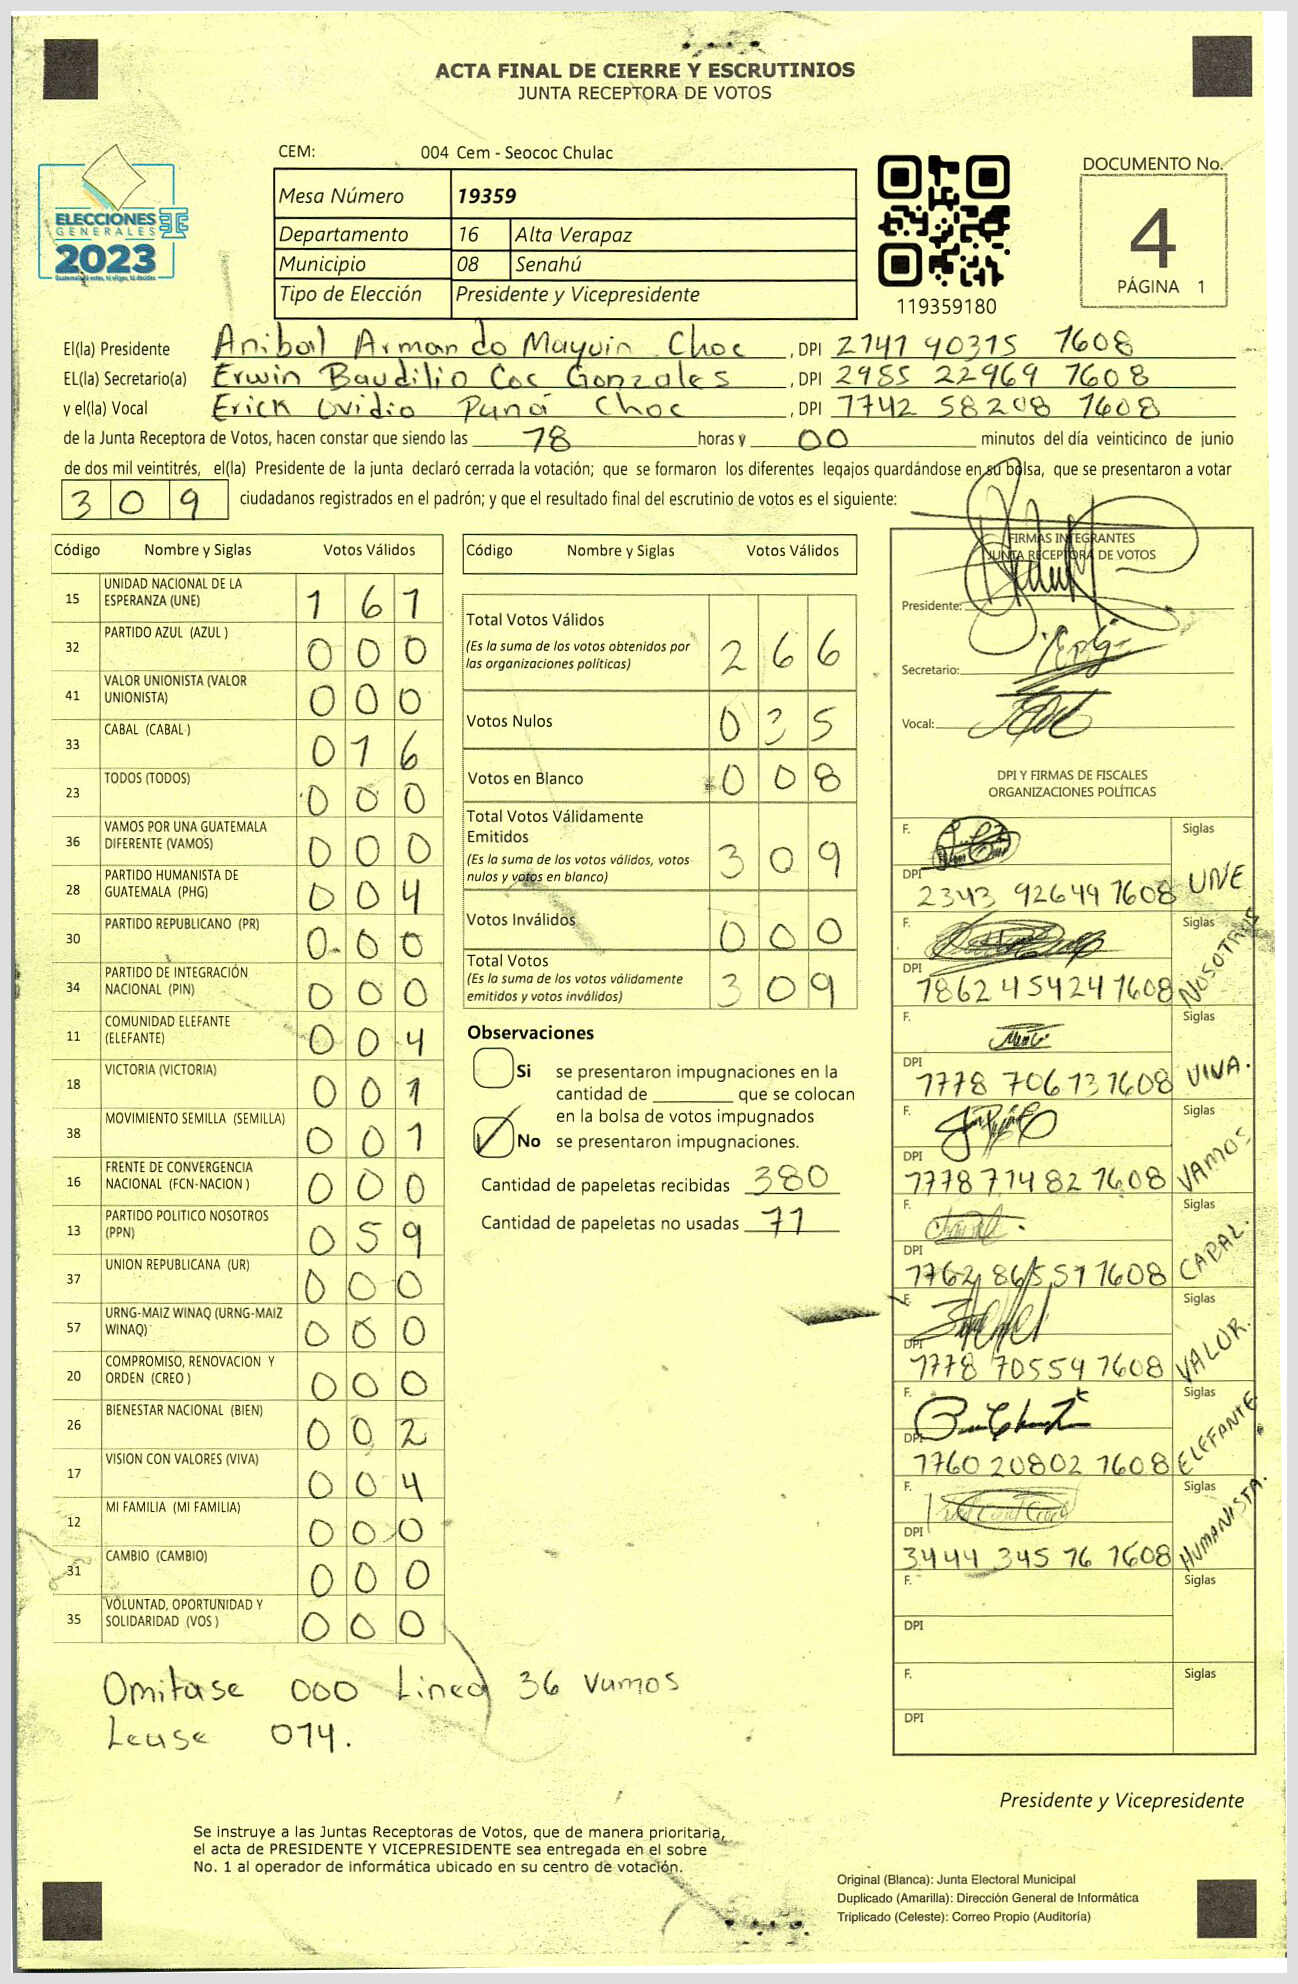 ACTA FINAL DE CIERRE Y ESCRUTINIOS
JUNTA RECEPTORA DE VOTOS
ELECCIONES
GENERALES
2023
CEM: 004 Cem - Seococ Chulac
Mesa Número 19359
Departamento 16 Alta Verapaz
Municipio 08 Senahú
Tipo de Elección Presidente y Vicepresidente
119359180
DOCUMENTO No.
4
PÁGINA 1
El(la) Presidente Anibal Armando Mayuin Choc, DPI 2141 90315 1608
EL(la) Secretario(a) Erwin Baudilio Coc Gonzales, DPI 2985 22969 1608
y el(la) Vocal Erick Ovidio Puná Choc, DPI 1742 58208 1608
de la Junta Receptora de Votos, hacen constar que siendo las 18 horas y 00 minutos del día veinticinco de junio
de dos mil veintitrés, el(la) Presidente de la junta declaró cerrada la votación; que se formaron los diferentes legajos guardándose en su bolsa, que se presentaron a votar
309 ciudadanos registrados en el padrón; y que el resultado final del escrutinio de votos es el siguiente:
Código Nombre y Siglas Votos Válidos
15 UNIDAD NACIONAL DE LA ESPERANZA (UNE) 161
32 PARTIDO AZUL (AZUL ) 000
41 VALOR UNIONISTA (VALOR UNIONISTA) 000
33 CABAL (CABAL ) 016
23 TODOS (TODOS) 000
36 VAMOS POR UNA GUATEMALA DIFERENTE (VAMOS) 000
28 PARTIDO HUMANISTA DE GUATEMALA (PHG) 004
30 PARTIDO REPUBLICANO (PR) 000
34 PARTIDO DE INTEGRACIÓN NACIONAL (PIN) 000
11 COMUNIDAD ELEFANTE (ELEFANTE) 004
18 VICTORIA (VICTORIA) 001
38 MOVIMIENTO SEMILLA (SEMILLA) 001
16 FRENTE DE CONVERGENCIA NACIONAL (FCN-NACION ) 000
13 PARTIDO POLITICO NOSOTROS (PPN) 059
37 UNION REPUBLICANA (UR) 000
57 URNG-MAIZ WINAQ (URNG-MAIZ WINAQ) 000
20 COMPROMISO, RENOVACION Y ORDEN (CREO ) 000
26 BIENESTAR NACIONAL (BIEN) 002
17 VISION CON VALORES (VIVA) 004
12 MI FAMILIA (MI FAMILIA) 000
31 CAMBIO (CAMBIO) 000
35 VOLUNTAD, OPORTUNIDAD Y SOLIDARIDAD (VOS ) 000
Omitase 000 Linea 36 Vamos
Lease 014.
Código Nombre y Siglas Votos Válidos
Total Votos Válidos 266
(Es la suma de los votos obtenidos por
las organizaciones políticas)
Votos Nulos 035
Votos en Blanco 008
Total Votos Válidamente
Emitidos 309
(Es la suma de los votos válidos, votos
nulos y votos en blanco)
Votos Inválidos 000
Total Votos 309
(Es la suma de los votos válidamente
emitidos y votos inválidos)
Observaciones
Si se presentaron impugnaciones en la
cantidad de ________ que se colocan
en la bolsa de votos impugnados
No se presentaron impugnaciones.
Cantidad de papeletas recibidas 380
Cantidad de papeletas no usadas 71
FIRMAS INTEGRANTES
JUNTA RECEPTORA DE VOTOS
Presidente:
Secretario:
Vocal:
DPI Y FIRMAS DE FISCALES
ORGANIZACIONES POLÍTICAS
F. Siglas
DPI 2343 92649 1608 UNE
F. Siglas
DPI 1862 45424 1608 NOSOTROS
F. Siglas
DPI 1778 70613 1608 VIVA.
F. Siglas
DPI 1778 71482 1608 VAMOS
F. Siglas
DPI 1762 86551 1608 CABAL.
F. Siglas
DPI 1778 70554 1608 VALOR.
F. Siglas
DPI 1760 20802 1608 ELEFANTE
F. Siglas
DPI 3444 34576 1608 HUMANISTA.
F. Siglas
DPI
F. Siglas
DPI
Presidente y Vicepresidente
Se instruye a las Juntas Receptoras de Votos, que de manera prioritaria,
el acta de PRESIDENTE Y VICEPRESIDENTE sea entregada en el sobre
No. 1 al operador de informática ubicado en su centro de votación.
Original (Blanca): Junta Electoral Municipal
Duplicado (Amarilla): Dirección General de Informática
Triplicado (Celeste): Correo Propio (Auditoría)